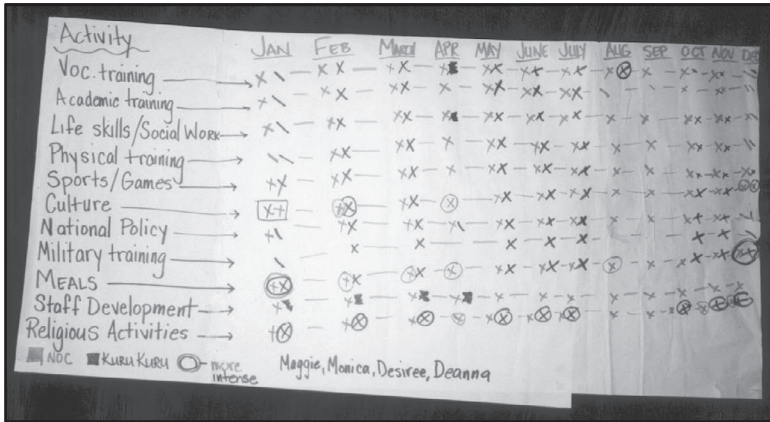 Activity
JAN FEB MARCH APR MAY JUNE JULY AUG SEP OCT NOV DEC
Voc. training
Academic training
Life skills/Social Work
Physical training
Sports/Games
Culture
National Policy
Military training
MEALS
Staff Development
Religious Activities
NOC KURU KURU more intense
Maggie, Monica, Desiree, Deanna